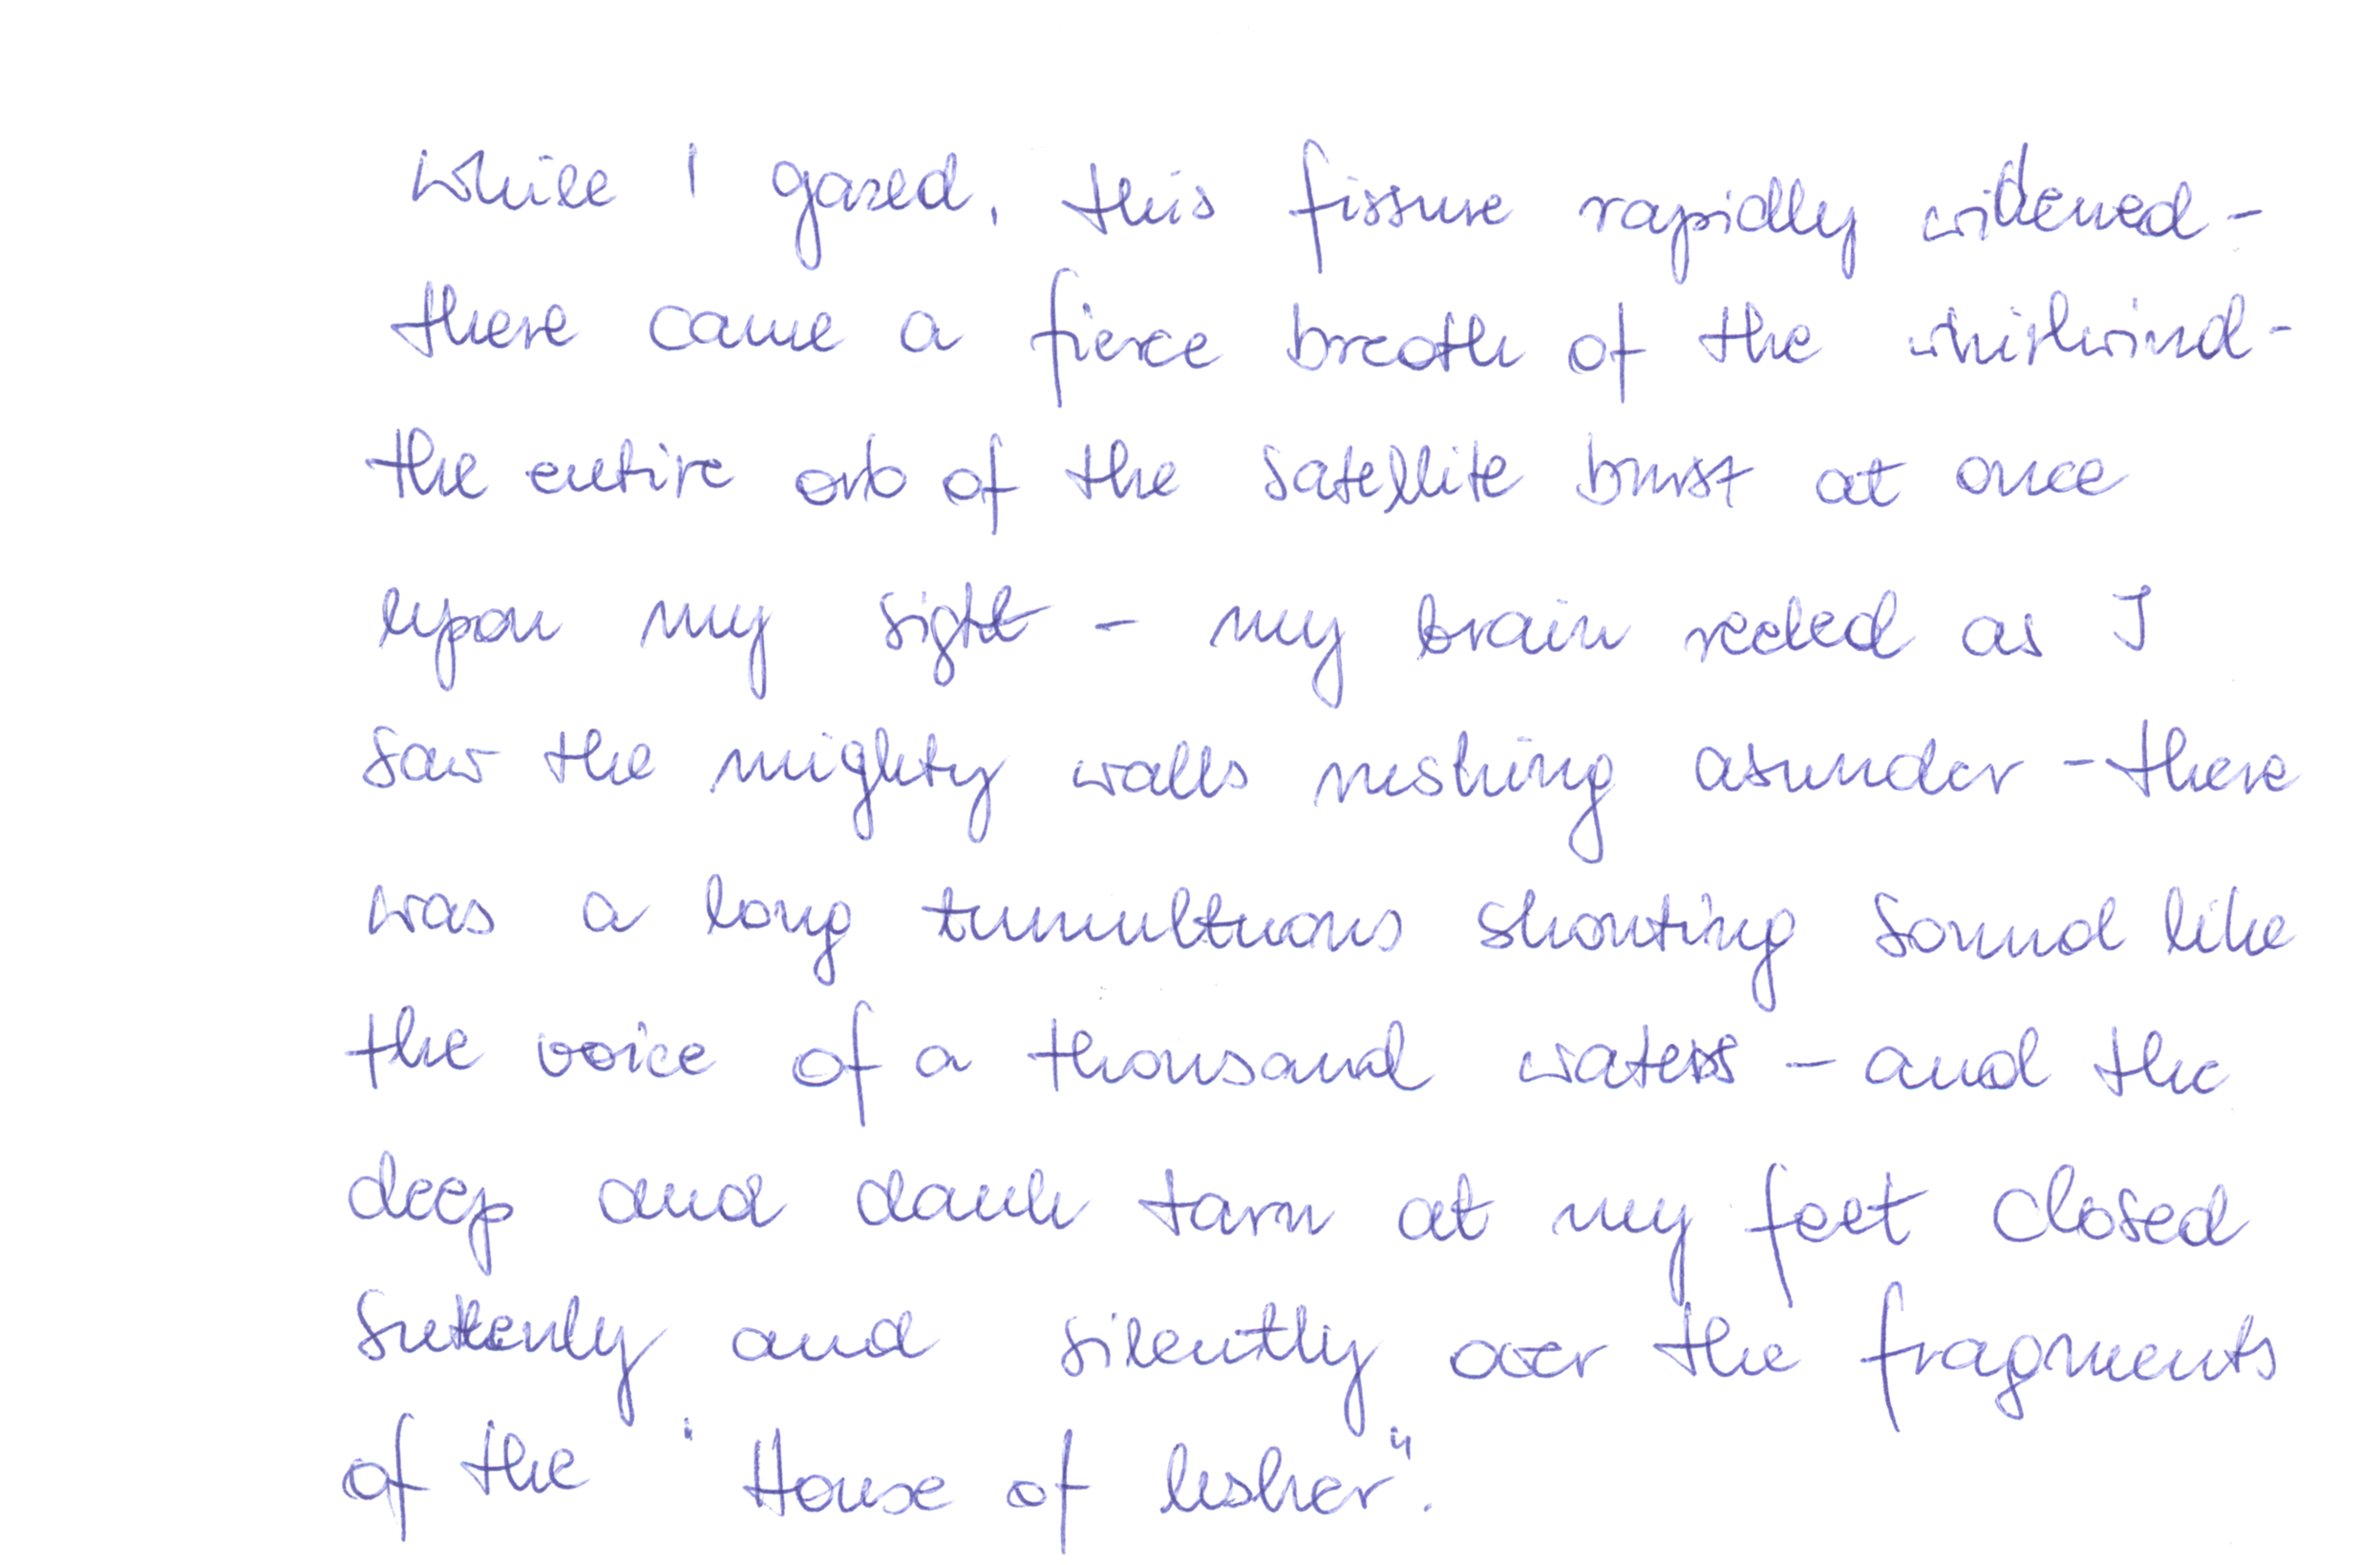 While I gazed, this fissure rapidly widened -
there came a fierce breath of the whirlwind -
the entire orb of the satellite burst at once
upon my sight - my brain reeled as I
saw the mighty walls rushing asunder - there
was a long tumultuous shouting sound like
the voice of a thousand waters - and the
deep and dank tarn at my feet closed
sullenly and silently over the fragments
of the "House of Usher".